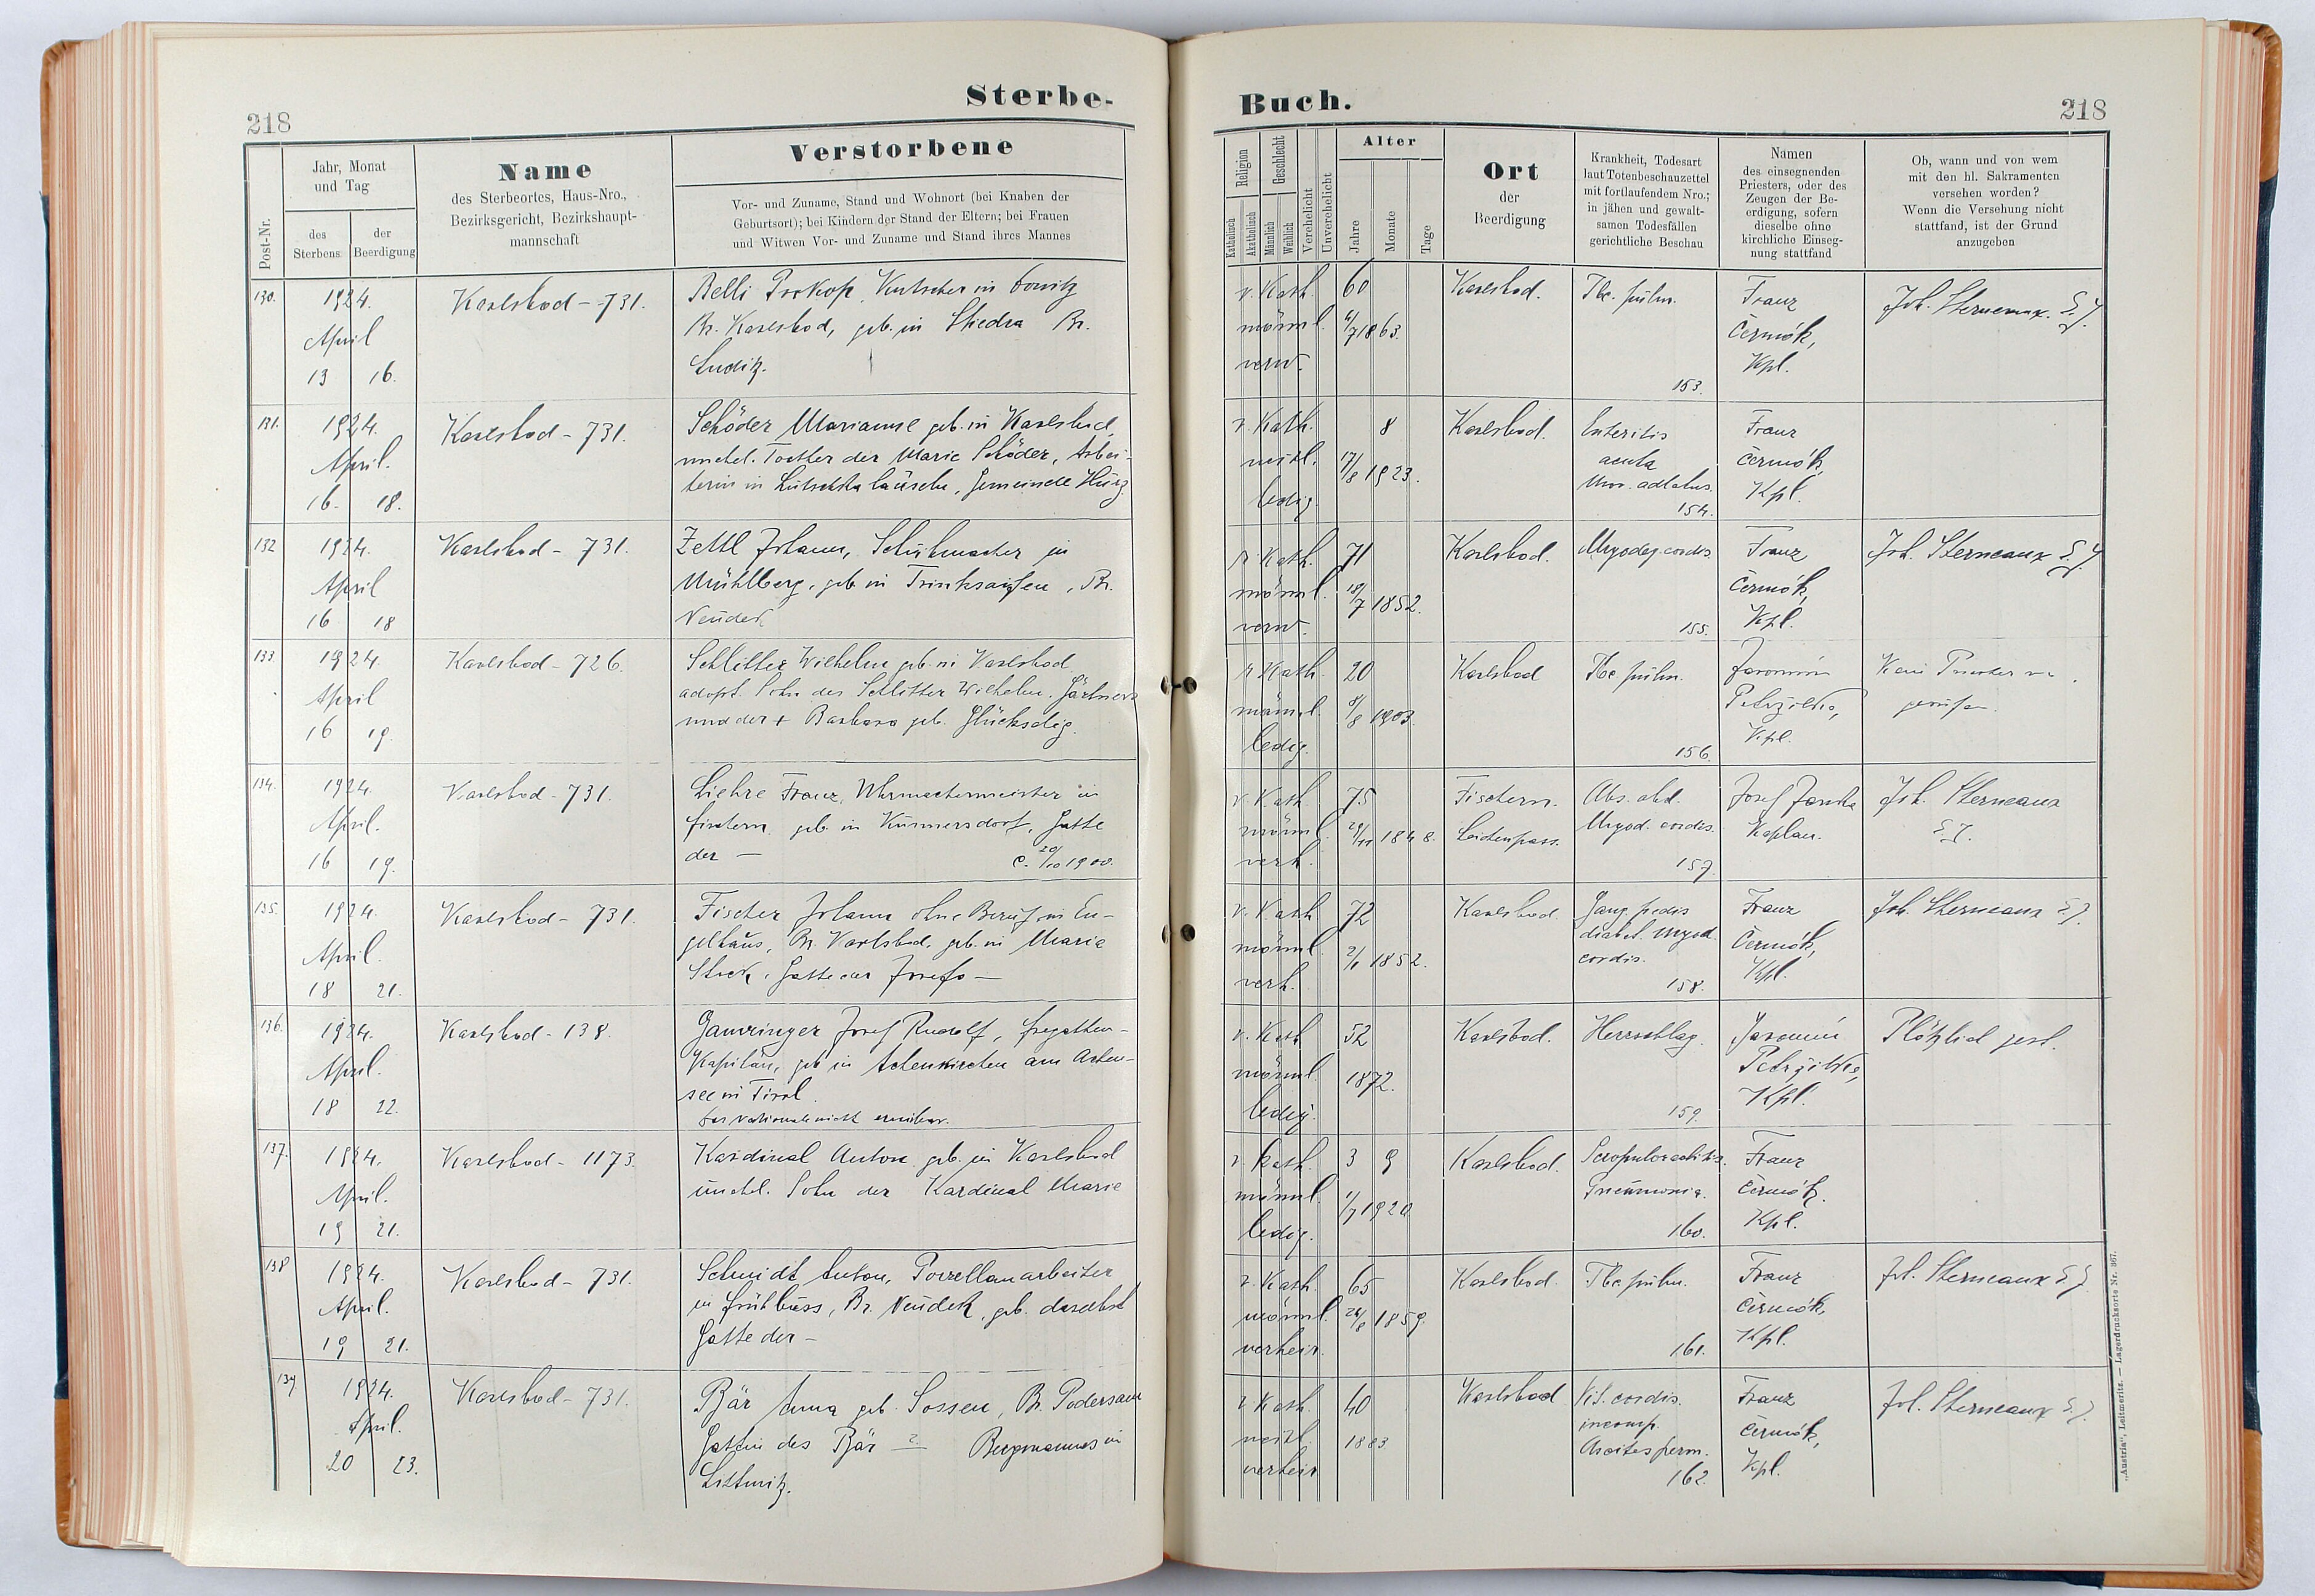 218
Sterbe-
Buch.
218
Post-Nr.
Jahr, Monat
und Tag
des
Sterbens
der
Beerdigung
Name
des Sterbeortes, Haus-Nro.,
Bezirksgericht, Bezirkshaupt-
mannschaft
Verstorbene
Vor- und Zuname, Stand und Wohnort (bei Knaben der
Geburtsort); bei Kindern der Stand der Eltern; bei Frauen
und Witwen Vor- und Zuname und Stand ihres Mannes
Religion
Katholisch
Akatholisch
Geschlecht
Männlich
Weiblich
Verehelicht
Unverehelicht
Alter
Jahre
Monate
Tage
Ort
der
Beerdigung
Krankheit, Todesart
laut Totenbeschauzettel
mit fortlaufendem Nro.;
in jähen und gewalt-
samen Todesfällen
gerichtliche Beschau
Namen
des einsegnenden
Priesters, oder des
Zeugen der Be-
erdigung, sofern
dieselbe ohne
kirchliche Einseg-
nung stattfand
Ob, wann und von wem
mit den hl. Sakramenten
versehen worden?
Wenn die Versehung nicht
stattfand, ist der Grund
anzugeben
130.
1924.
April
13 16.
Karlsbad - 731.
Belli Prokop, Kutscher in Donitz
Bz. Karlsbad, geb. in Stiedra Bz.
Luditz.
r. Kath.
männl.
verw.
60
1863.
Karlsbad.
Tbc. pulm.
153.
Franz
Čermák,
Kpl.
Joh. Sterneaux. S.J.
131.
1924.
April.
16. 18.
Karlsbad - 731.
Schöder Marianne geb. in Karlsbad,
unehel. Tochter der Marie Schöder, Arbei-
terin in
r. Kath.
weibl.
ledig.
8
17/8 1923.
Karlsbad.
Enteritis
acuta
154.
Franz
Čermák,
Kpl.
132
1924.
April
16 18
Karlsbad - 731.
Zettl Johann, Schuhmacher in
Mühlberg, geb. in Trinksaifen, Bz.
Neudek.
r. Kath.
männl.
verw.
71
18/7 1852.
Karlsbad.
Myodeg. cordis
155.
Franz
Čermák,
Kpl.
Joh. Sterneaux S.J.
133.
1924.
April
16 19.
Karlsbad - 726.
Schlitter Wilhelm geb. in Karlsbad
adopt. Sohn des Schlitter Wilhelm. Gärtners
und der + Barbara geb. Glückselig.
r. Kath.
männl.
ledig.
20
8/8 1903.
Karlsbad
Tbc pulm.
156.
Jaromír
Petržilka,
Kpl.
Kein Priester
gerufen.
134.
1924.
April.
16 19.
Karlsbad - 731.
Liehre Franz, Uhrmachermeister in
Fischern, geb. in Kummersdorf, Gatte
der — C. 20/10 1900.
r. Kath.
männl.
verh.
75
29/11 1848.
Fischern.
Leichenpass.
Abs. abd.
Myod. cordis.
157.
Josef Janka
Kaplan.
Joh. Sterneaux
S.J.
135.
1924.
April.
18 21.
Karlsbad - 731.
Fischer Johann ohne Beruf in En-
gelhaus, Bz. Karlsbad, geb. in Maria
Stock, Gatte der Josefa —
r. Kath
männl.
verh.
72
2/1 1852.
Karlsbad.
Gang. pedis
diabet. Myod.
cordis.
158.
Franz
Čermák,
Kpl.
Joh. Sterneaux S.J.
136.
1924.
April.
18 22.
Karlsbad - 138.
Gamringer Josef Rudolf, Fregatten-
Kapitän, geb. in Achenkirchen am Achen-
see in Tirol.
r. Kath
männl.
ledig.
52
1872.
Karlsbad.
Herzschlag.
159.
Jaromír
Petržilka,
Kpl.
Plötzlich gest.
137.
1924.
April.
19 21.
Karlsbad - 1173.
Kardinal Anton geb. in Karlsbad
unehel. Sohn der Kardinal Marie
r. Kath.
männl.
ledig.
3 9
1/7 1920
Karlsbad.
Pneumonia.
160.
Franz
Čermák.
Kpl.
138
1924.
April.
19 21.
Karlsbad - 731.
Schmidt Anton, Porzellanarbeiter
in Frühbuss, Bz. Neudek, geb. daselbst
Gatte der —
r. Kath.
männl.
verheir.
65
26/8 1859.
Karlsbad.
Tbc pulm.
161.
Franz
Čermák,
Kpl.
Joh. Sterneaux S.J.
139
1924.
April.
20 23.
Karlsbad - 731.
Bär Anna geb. Sossen, Bz. Podersam
Gattin des Bär — ? Bergmannes in
Littmitz.
r. Kath.
weibl.
verheir
40
1883
Karlsbad
Vit. cordis.
incomp.
Ascites perm.
162.
Franz
Čermák,
Kpl.
Joh. Sterneaux S.J.
„Austria“, Leitmeritz. — Lagerdrucksorte Nr. 367.